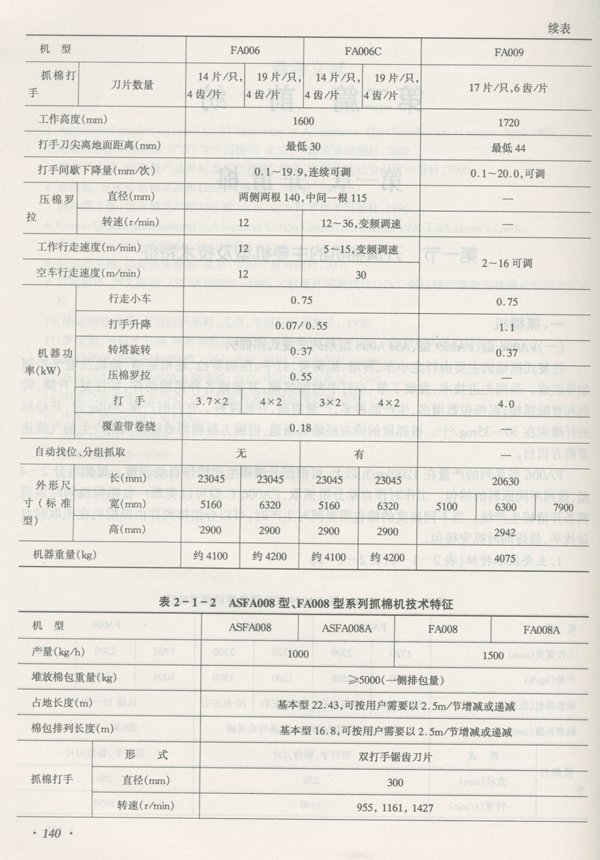 续表
机 型 FA006 FA006C FA009
抓棉打手 刀片数量 14片/只,4齿/片 19片/只,4齿/片 14片/只,4齿/片 19片/只,4齿/片 17片/只,6齿/片
工作高度(mm) 1600 1720
打手刀尖离地面距离(mm) 最低30 最低44
打手间歇下降量(mm/次) 0.1~19.9,连续可调 0.1~20.0,可调
压棉罗拉 直径(mm) 两侧两根140,中间一根115 —
转速(r/min) 12 12~36,变频调速 —
工作行走速度(m/min) 12 5~15,变频调速 2~16可调
空车行走速度(m/min) 12 30
机器功率(kW) 行走小车 0.75 0.75
打手升降 0.07/0.55 1.1
转塔旋转 0.37 0.37
压棉罗拉 0.55 —
打 手 3.7×2 4×2 3×2 4×2 4.0
覆盖带卷绕 0.18
自动找位、分组抓取 无 有 —
外形尺寸(标准型) 长(mm) 23045 23045 23045 23045 20630
宽(mm) 5160 6320 5160 6320 5100 6300 7900
高(mm) 2900 2900 2900 2900 2942
机器重量(kg) 约4100 约4200 约4100 约4200 4075
表2-1-2 ASFA008型、FA008型系列抓棉机技术特征
机 型 ASFA008 ASFA008A FA008 FA008A
产量(kg/h) 1000 1500
堆放棉包重量(kg) ≥5000(一侧排包量)
占地长度(m) 基本型22.43,可按用户需要以2.5m/节增减或递减
棉包排列长度(m) 基本型16.8,可按用户需要以2.5m/节增减或递减
抓棉打手 形 式 双打手锯齿刀片
直径(mm) 300
转速(r/min) 955, 1161, 1427
· 140 ·